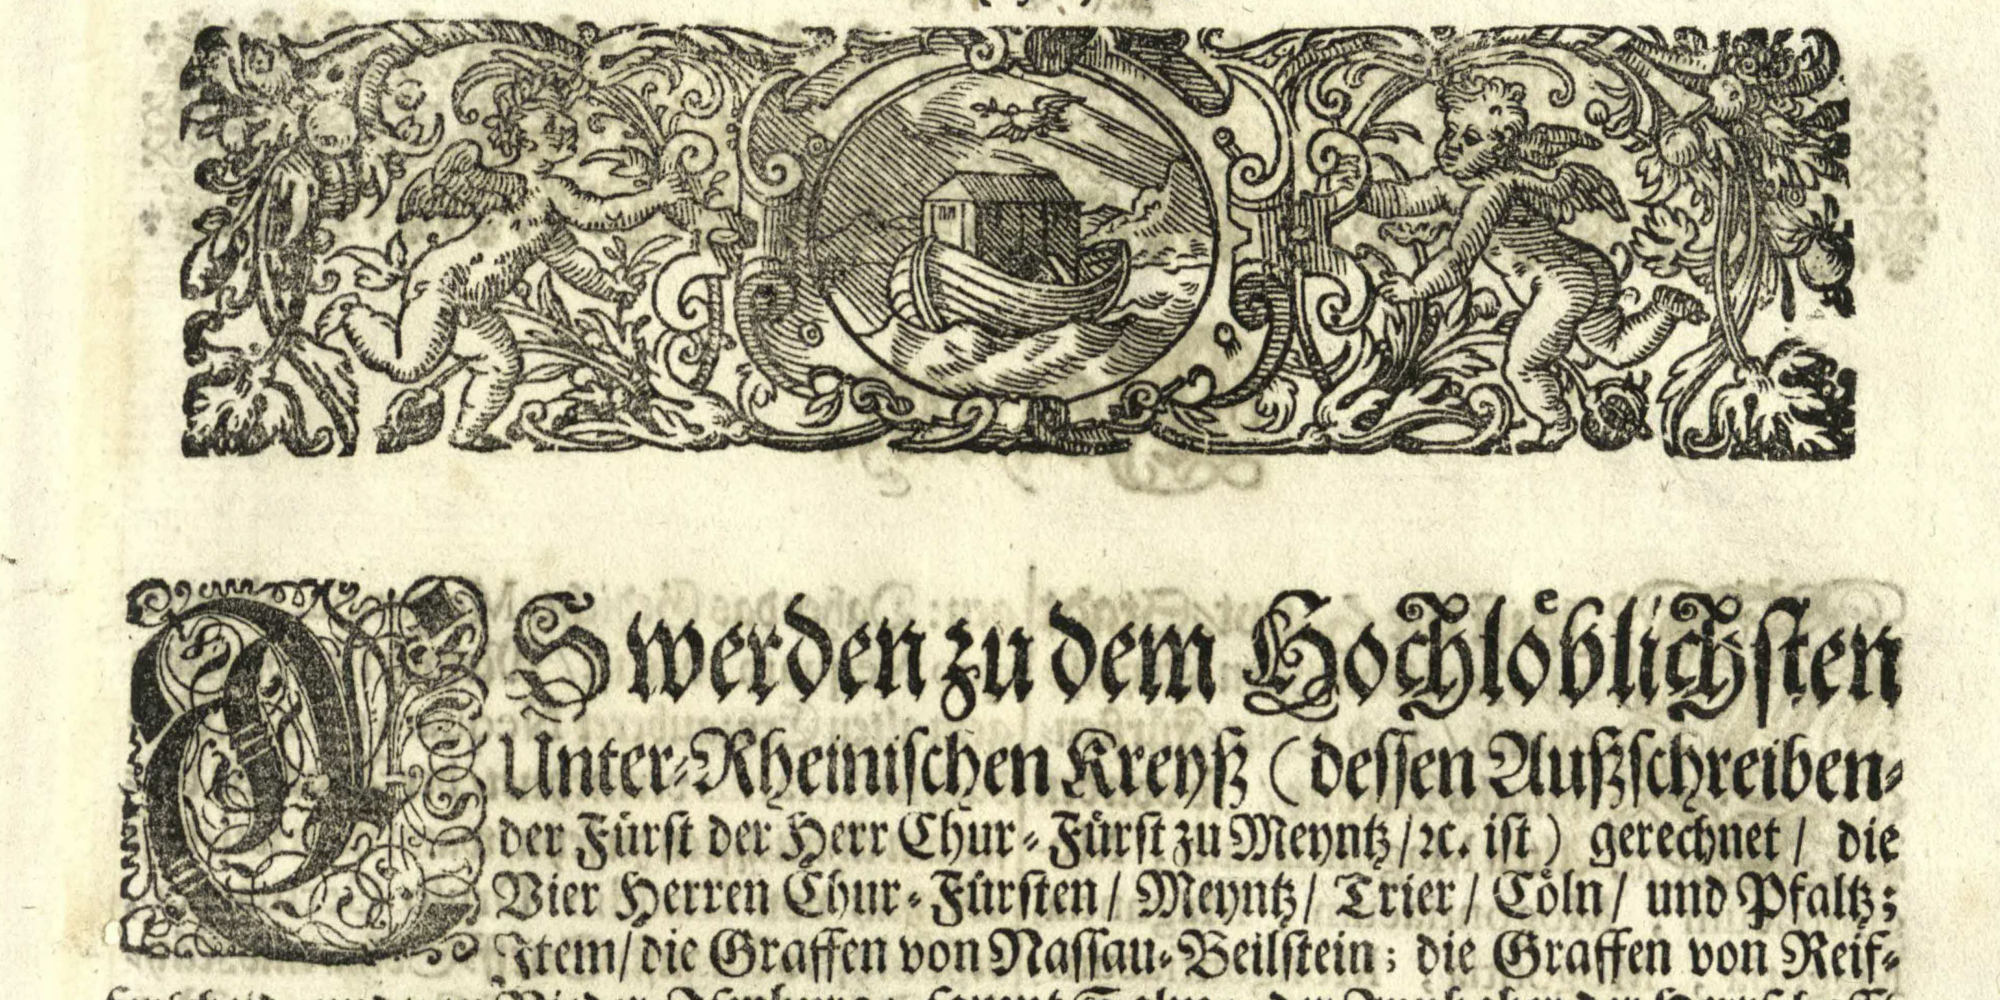 ES werden zu dem Hochlöblichsten
Unter-Rheinischen Kreyß (dessen Außschreiben-
der Fürst der Herr Chur-Fürst zu Meyntz/ ꝛc. ist) gerechnet/ die
Vier Herren Chur-Fürsten/ Meyntz/ Trier/ Cöln/ und Pfaltz;
Item/ die Graffen von Nassau-Beilstein; die Graffen von Reif-